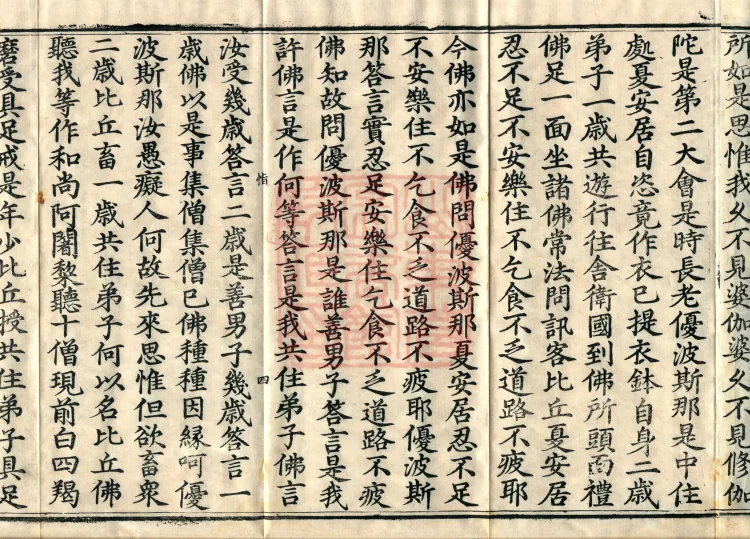 所如是思惟我久不見婆伽婆久不見修伽
陀是第二大會是時長老優波斯那是中住
處夏安居自恣竟作衣已提衣鉢自身二歳
弟子一歳共遊行往舍衛國到佛所頭面禮
佛足一面坐諸佛常法問訊客比丘夏安居
忍不足不安樂住不乞食不乏道路不疲耶
今佛亦如是佛問優波斯那夏安居忍不足
不安樂住不乞食不乏道路不疲耶優波斯
那答言實忍足安樂住乞食不乏道路不疲
佛知故問優波斯那是誰善男子答言是我
許佛言是作何等答言是我共住弟子佛言
四
汝受幾歳答言二歳是善男子幾歳答言一
歳佛以是事集僧集僧已佛種種因緣呵優
波斯那汝愚癡人何故先來思惟但欲畜衆
二歳比丘畜一歳共住弟子何以名比丘佛
聽我等作和尚阿闍黎聽十僧現前白四羯
磨受具足戒是年少比丘授共住弟子具足